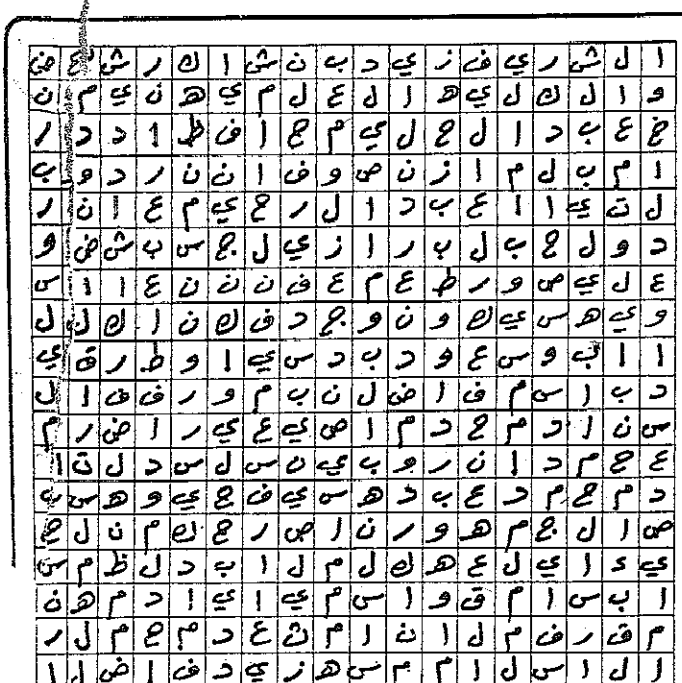 ا ل ش ر ي ف ز ي د ب ن ش ا ك ر ش ع ض
و ا ل ك ل ي ه ا ل ع ل م ي ه ن ي م ن
ح ع ب د ا ل ح ل ي م ح ا ف ظ 1 د د ر
ا م ب ل م ا ز ن ص و ف ا ن ن ر د و ب
ل ن ي ا ا ع ب د ا ل ر ح ي م ع ا ن ر
د و ل ح ب ل ب ر ا ز ي ل ج س ب ش ض و
ع ل ي ص و ر ط ع م ع ف ن ن ن ع ا ا س
و ي ه س ي ك و ن و ج د ف ك ن ا ك ل ل
ا ا ب و س ع و د ب د س ي ا و ط ر ق ي
د ب ا س م ف ا ض ل ن ب م و ر ف ف ا ل
س ن ا د م ح د م ا ص ي ع ي ر ا ض ر م
ع ح م د ا ن ر و ب ي ن س ل س د ل ت ا
د م ح م د ع ب د ه س ي ف ج ي و ه س ب
ص ا ل ح م ه و ر ن ا ص ر ح ك م ن ل ح
ي ء ا ي ل ع ه ك ل م ل ا ب د ل ظ م س
ا ب س ا م ق و ا س م ي ا ي ا د م ه ن
م ق ر ف م ل ا ن ا م ث ع د م ح م ل ر
ا ل ا س ل ا م م س ه ز ي د ف ا ض ل ا